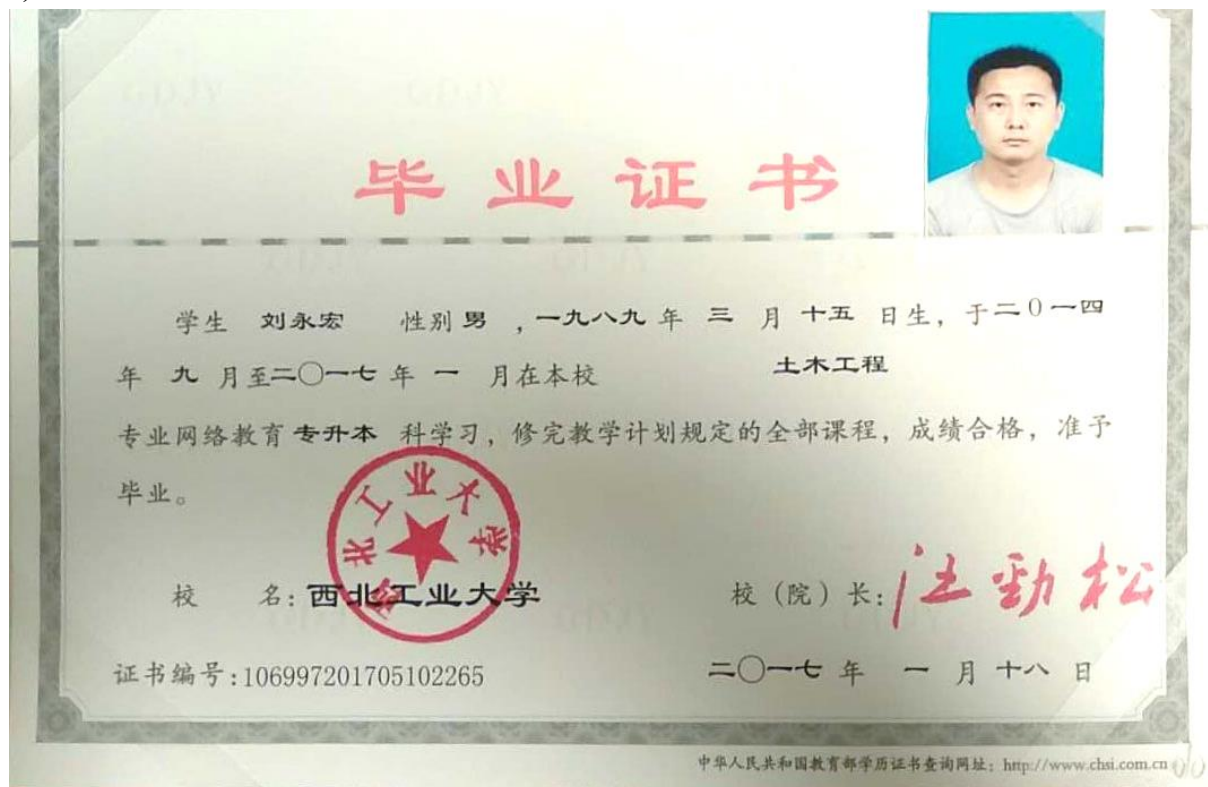 毕业证书
学生 刘永宏 性别 男 ,一九八九 年 三 月 十五 日生, 于二0一四
年 九 月至二〇一七 年 一 月在本校 土木工程
专业网络教育 专升本 科学习, 修完教学计划规定的全部课程, 成绩合格, 准予
毕业。
西北工业大学
校 名: 西北工业大学 校(院)长: 汪劲松
证书编号:106997201705102265 二〇一七 年 一 月 十八 日
中华人民共和国教育部学历证书查询网址: http://www.chsi.com.cn